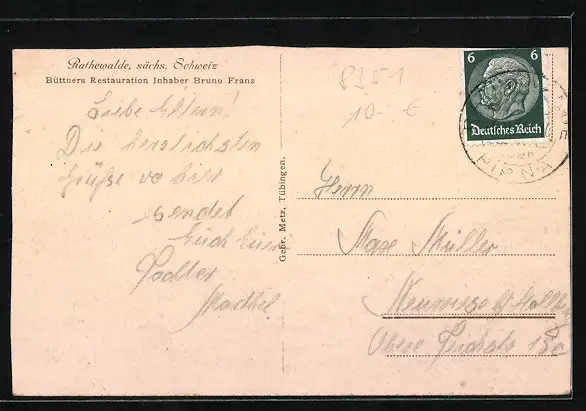 Rathewalde, sächs. Schweiz
Büttners Restauration Inhaber Bruno Franz
8351
10.- €
Liebe Eltern!
Die herzlichsten
Grüße von hier
sendet
Euch Eure
Tochter
Gebr. Metz, Tübingen.
6 6
Deutsches Reich
PIRNA
Herrn
Max Müller
Obere 13c